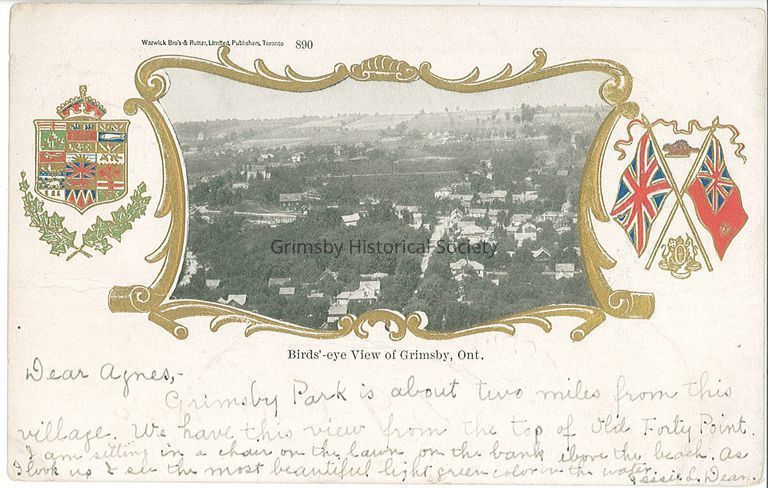 Warwick Bro's & Rutter, Limited, Publishers, Toronto 890
Grimsby Historical Society
Birds'-eye View of Grimsby, Ont.
Dear Agnes,-
Grimsby Park is about two miles from this
village. We have this view from the top of Old Forty Point.
I am sitting in a chair on the lawn on the bank above the beach. As
I look up I see the most beautiful light green color in the water.
Jessie L. Dean.